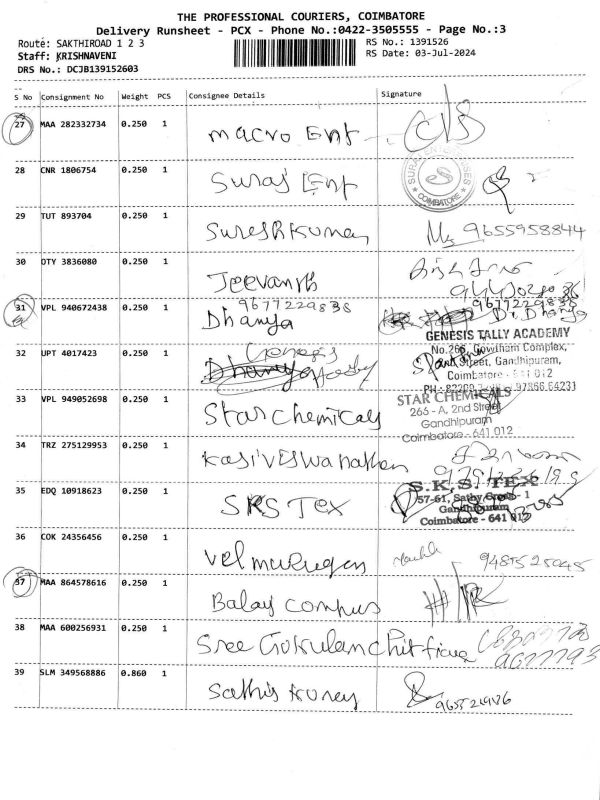 THE PROFESSIONAL COURIERS, COIMBATORE
Delivery Runsheet - PCX - Phone No.:0422-3505555 - Page No.:3
Route: SAKTHIROAD 1 2 3
RS No.: 1391526
Staff: KRISHNAVENI
RS Date: 03-Jul-2024
DRS No.: DCJB139152603
S No Consignment No Weight PCS Consignee Details Signature
27 MAA 282332734 0.250 1 Macro Ent
28 CNR 1806754 0.250 1 Suraj Ent
SURAJ ENTERPRISES
COIMBATORE
29 TUT 893704 0.250 1 Sureshkumar 9655958844
30 OTY 3836080 0.250 1 Jeevanth
31 VPL 940672438 0.250 1 Dhanya 9677229838
9677229836
Dr. Dhanya
GENESIS TALLY ACADEMY
No.266, Gowtham Complex,
Street, Gandhipuram,
Coimbatore - 641 012
32 UPT 4017423 0.250 1
33 VPL 949052698 0.250 1 Star Chemicals
STAR CHEMICALS
265 - A, 2nd Street
Gandhipuram
Coimbatore - 641 012
34 TRZ 275129953 0.250 1 Kasiviswanathan
35 EDQ 10918623 0.250 1 SKS Tex
S.K.S. TEX
57-61, Sathy
Gandhipuram
Coimbatore - 641 012
36 COK 24356456 0.250 1 Velmurugan
37 MAA 864578616 0.250 1 Balay compus
38 MAA 600256931 0.250 1 Sree Gokulam Chit
39 SLM 349568886 0.860 1